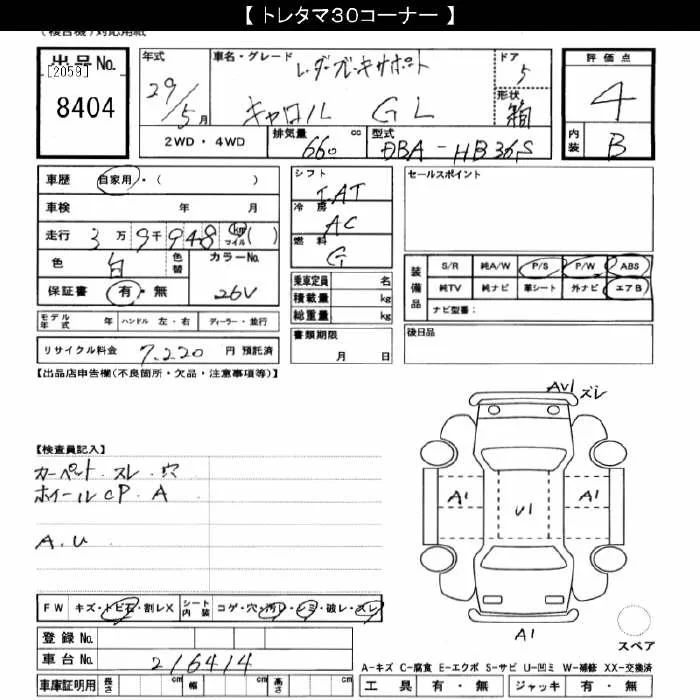 【 トレタマ30コーナー 】
(複合機)対応用紙
出品No. [2059] 8404
年式 29/5月
車名・グレード レーダーブレーキサポート キャロル GL
ドア 5
形状 箱
評価点 4
内装 B
2WD・4WD
排気量 660 cc
型式 DBA-HB36S
車歴 自家用・( )
車検 年 月
走行 3万9千948 km マイル ( )
色 白 色替 カラーNo.
保証書 有・無 26V
モデル年式 年 ハンドル 左・右 ディーラー・並行
リサイクル料金 7,220 円 預託済
シフト IAT
冷房 AC
燃料 G
乗車定員 名
積載量 kg
総重量 kg
書類期限
月 日
セールスポイント
装備品 S/R 純A/W P/S P/W ABS
純TV 純ナビ 革シート 外ナビ エアB
ナビ型番:
後日品
【出品店申告欄(不良箇所・欠品・注意事項等)】
【検査員記入】
カーペット スレ 穴
ホイールCP A
A.U
AU1 ズレ
A1 U1 A1
A1
スペア
FW キズ・トビ石・割レX シート内装 コゲ・穴・汚レ・シミ・破レ・スレ
登録No.
車台No. 216414
車庫証明用 長さ cm 幅 cm 高さ cm
A-キズ C-腐食 E-エクボ S-サビ U-凹ミ W-補修 XX-交換済
工具 有・無 ジャッキ 有・無